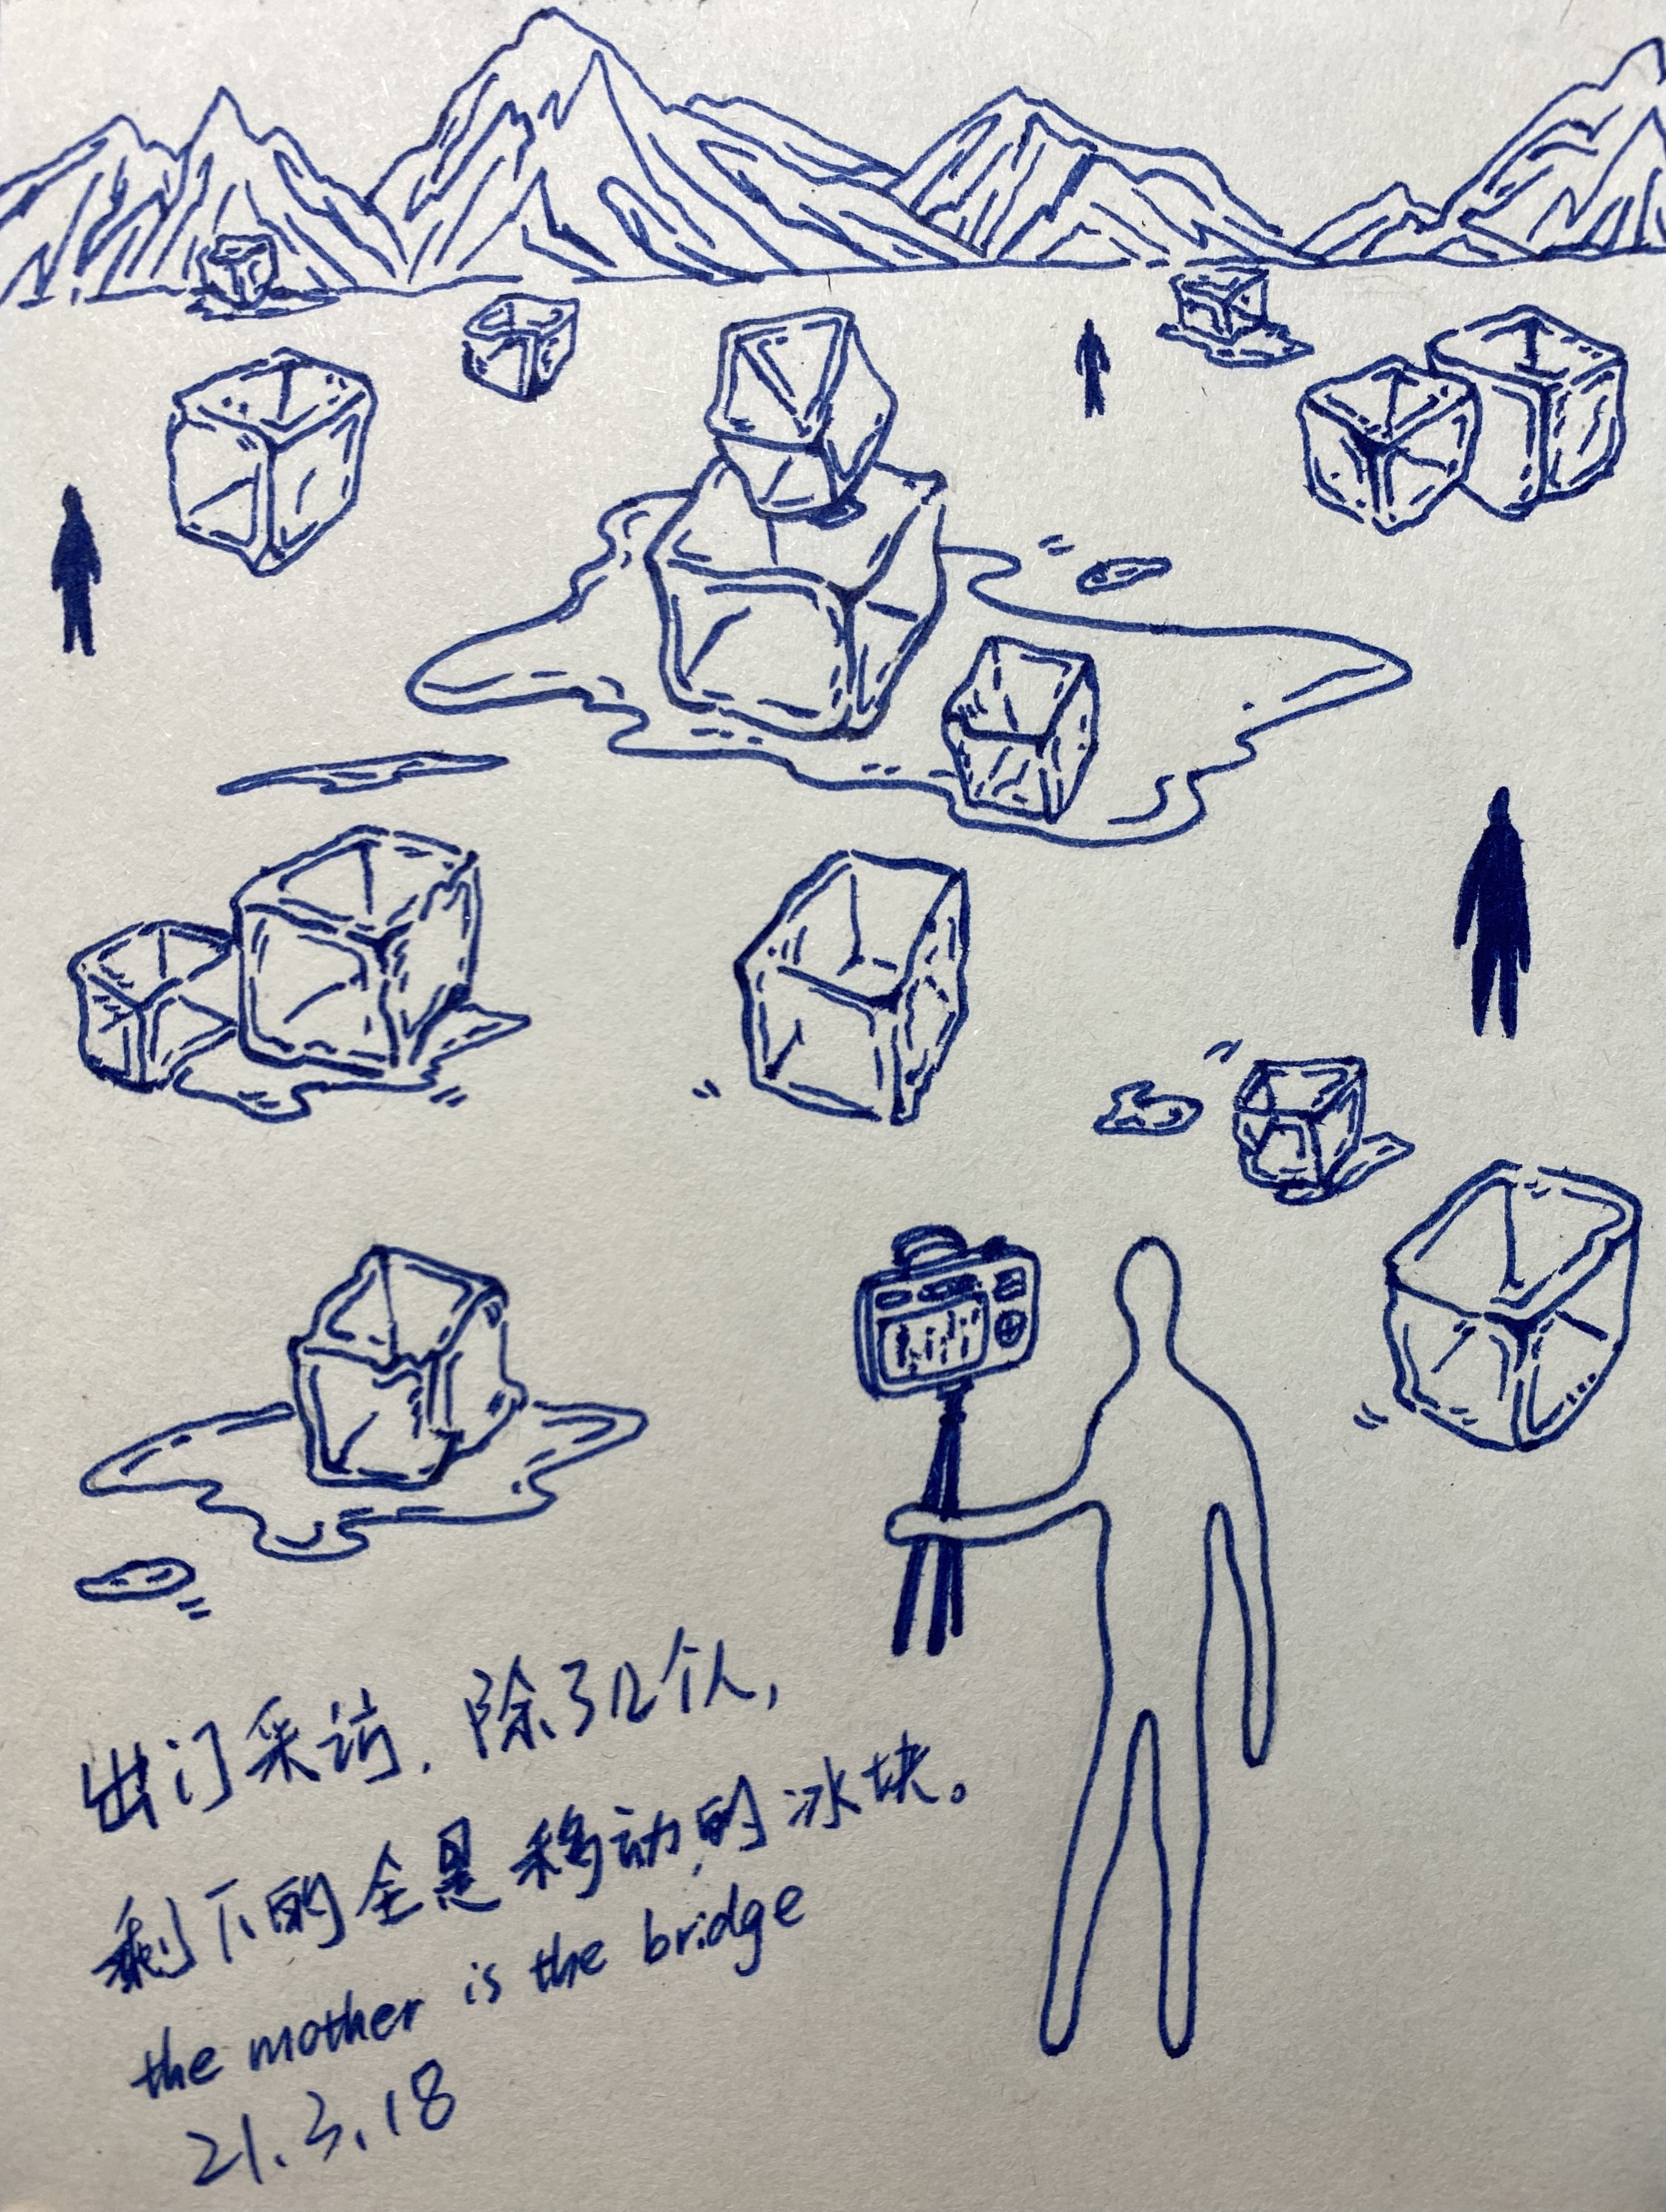 出门采访.除了几个人,
剩下的全是移动的冰块。
the mother is the bridge
21.3.18